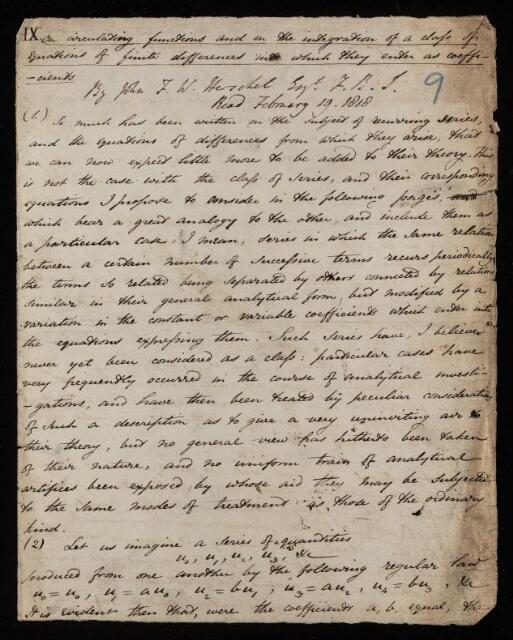 IX On circulating functions and on the integration of a class of
equations of finite differences into which they enter as coeffi-
-cients
By John F. W. Herschel Esqr. F. R. S.
Read February 19. 1818
9
(1.) So much has been written on the subject of recurring series,
and the equations of differences from which they arise, that
we can now expect little more to be added to their theory. This
is not the case with the class of series, and their corresponding
equations I propose to consider in the following pages,
which bear a great analogy to the other, and include them as
a particular case; I mean, series in which the same relation
between a certain number of successive terms recurs periodically
the terms so related being separated by others connected by relations
similar in their general analytical form, but modified by a
variation in the constant or variable coefficients which enter into
the equations expressing them. Such series have, I believe
never yet been considered as a class: particular cases have
very frequently occurred in the course of analytical investi-
-gations, and have then been treated by peculiar considerations
of such a description, as to give a very uninviting air to
their theory, but no general view has hitherto been taken
of their nature, and no uniform train of analytical
artifices been exposed by whose aid they may be subjected
to the same modes of treatment as those of the ordinary
kind.
(2) Let us imagine a series of quantities
u0, u1, u2, u3, &c
produced from one another by the following regular law
u0 = u0, u1 = au0, u2 = bu1; u3 = au2, u4 = bu3, &c
It is evident then that, were the coefficients a, b, equal, the